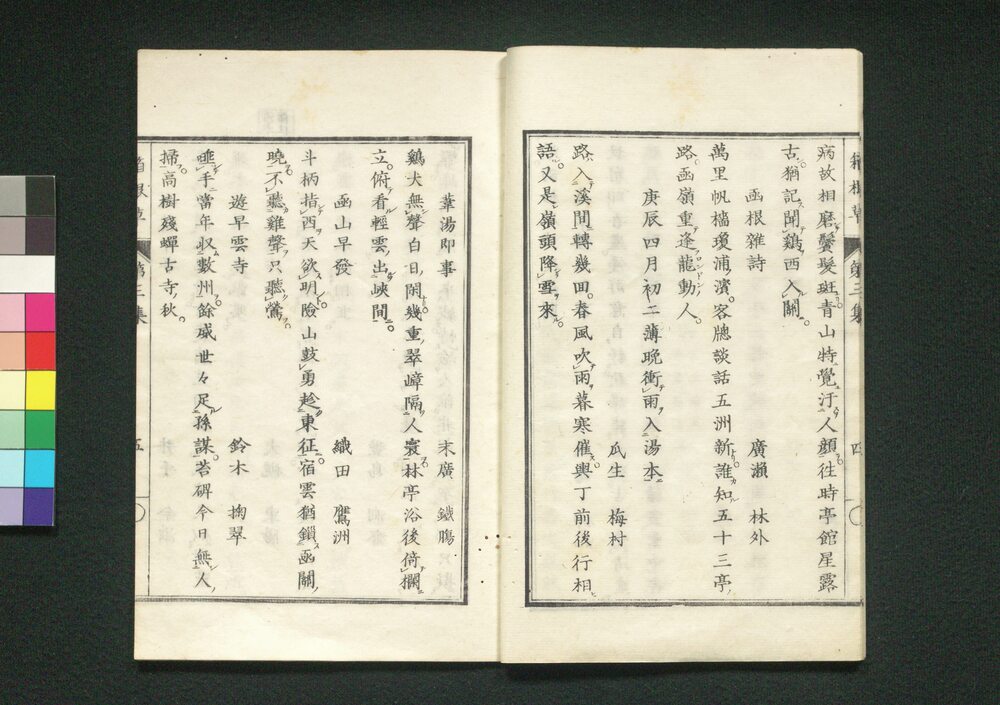 病故相磨鬢髮斑青山特覺汙人顏往時亭館星露
古猶記聞鷄西入關
函根雜詩
廣瀨 林外
萬里帆檣瓊浦濱客牕談話五洲新誰知五十三亭
路函嶺重逢龍動人
庚辰四月初二薄晚衝雨入湯本
瓜生 梅村
路入溪間轉幾回春風吹雨暮寒催輿丁前後行相
語又是嶺頭降雪來
第三集
四
葦湯即事
末廣 鐵膓
鷄犬無聲白日閑幾重翠嶂隔人寰林亭浴後倚欄
立俯看輕雲出峽間
函山早發
織田 鷹洲
斗柄指西天欲明險山鼓勇趁東征宿雲猶鎖函關
曉不聽雞聲只聽鶯
遊早雲寺
鈴木 掬翠
唾手當年収數州餘威世々足孫謀苔碑今日無人
掃高樹殘蟬古寺秋
箱根草
第三集
五